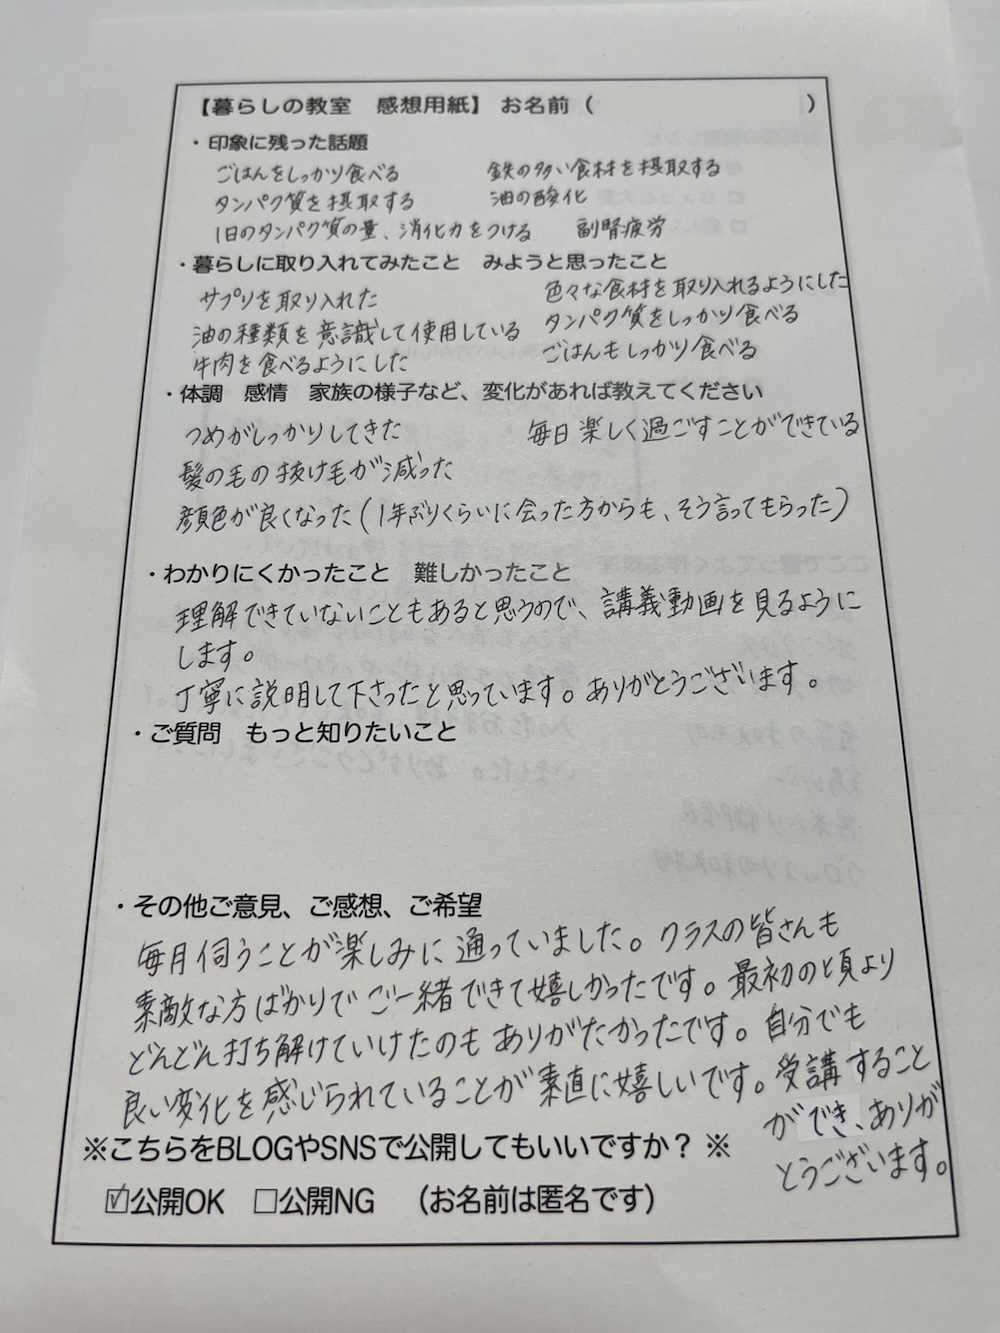 【暮らしの教室 感想用紙】 お名前( )
・印象に残った話題
ごはんをしっかり食べる 鉄の多い食材を摂取する
タンパク質を摂取する 油の酸化
1日のタンパク質の量、消化力をつける 副腎疲労
・暮らしに取り入れてみたこと みようと思ったこと
サプリを取り入れた 色々な食材を取り入れるようにした
油の種類を意識して使用している タンパク質をしっかり食べる
牛肉を食べるようにした ごはんもしっかり食べる
・体調 感情 家族の様子など、変化があれば教えてください
つめがしっかりしてきた 毎日楽しく過ごすことができている
髪の毛の抜け毛が減った
顔色が良くなった(1年ぶりくらいに会った方からも、そう言ってもらった)
・わかりにくかったこと 難しかったこと
理解できていないこともあると思うので、講義動画を見るように
します。
丁寧に説明して下さったと思っています。ありがとうございます。
・ご質問 もっと知りたいこと
・その他ご意見、ご感想、ご希望
毎月伺うことが楽しみに通っていました。クラスの皆さんも
素敵な方ばかりでご一緒できて嬉しかったです。最初の頃より
どんどん打ち解けていけたのもありがたかったです。自分でも
良い変化を感じられていることが素直に嬉しいです。受講すること
ができ、ありが
とうございます。
※こちらをBLOGやSNSで公開してもいいですか？※
☑公開OK □公開NG (お名前は匿名です)